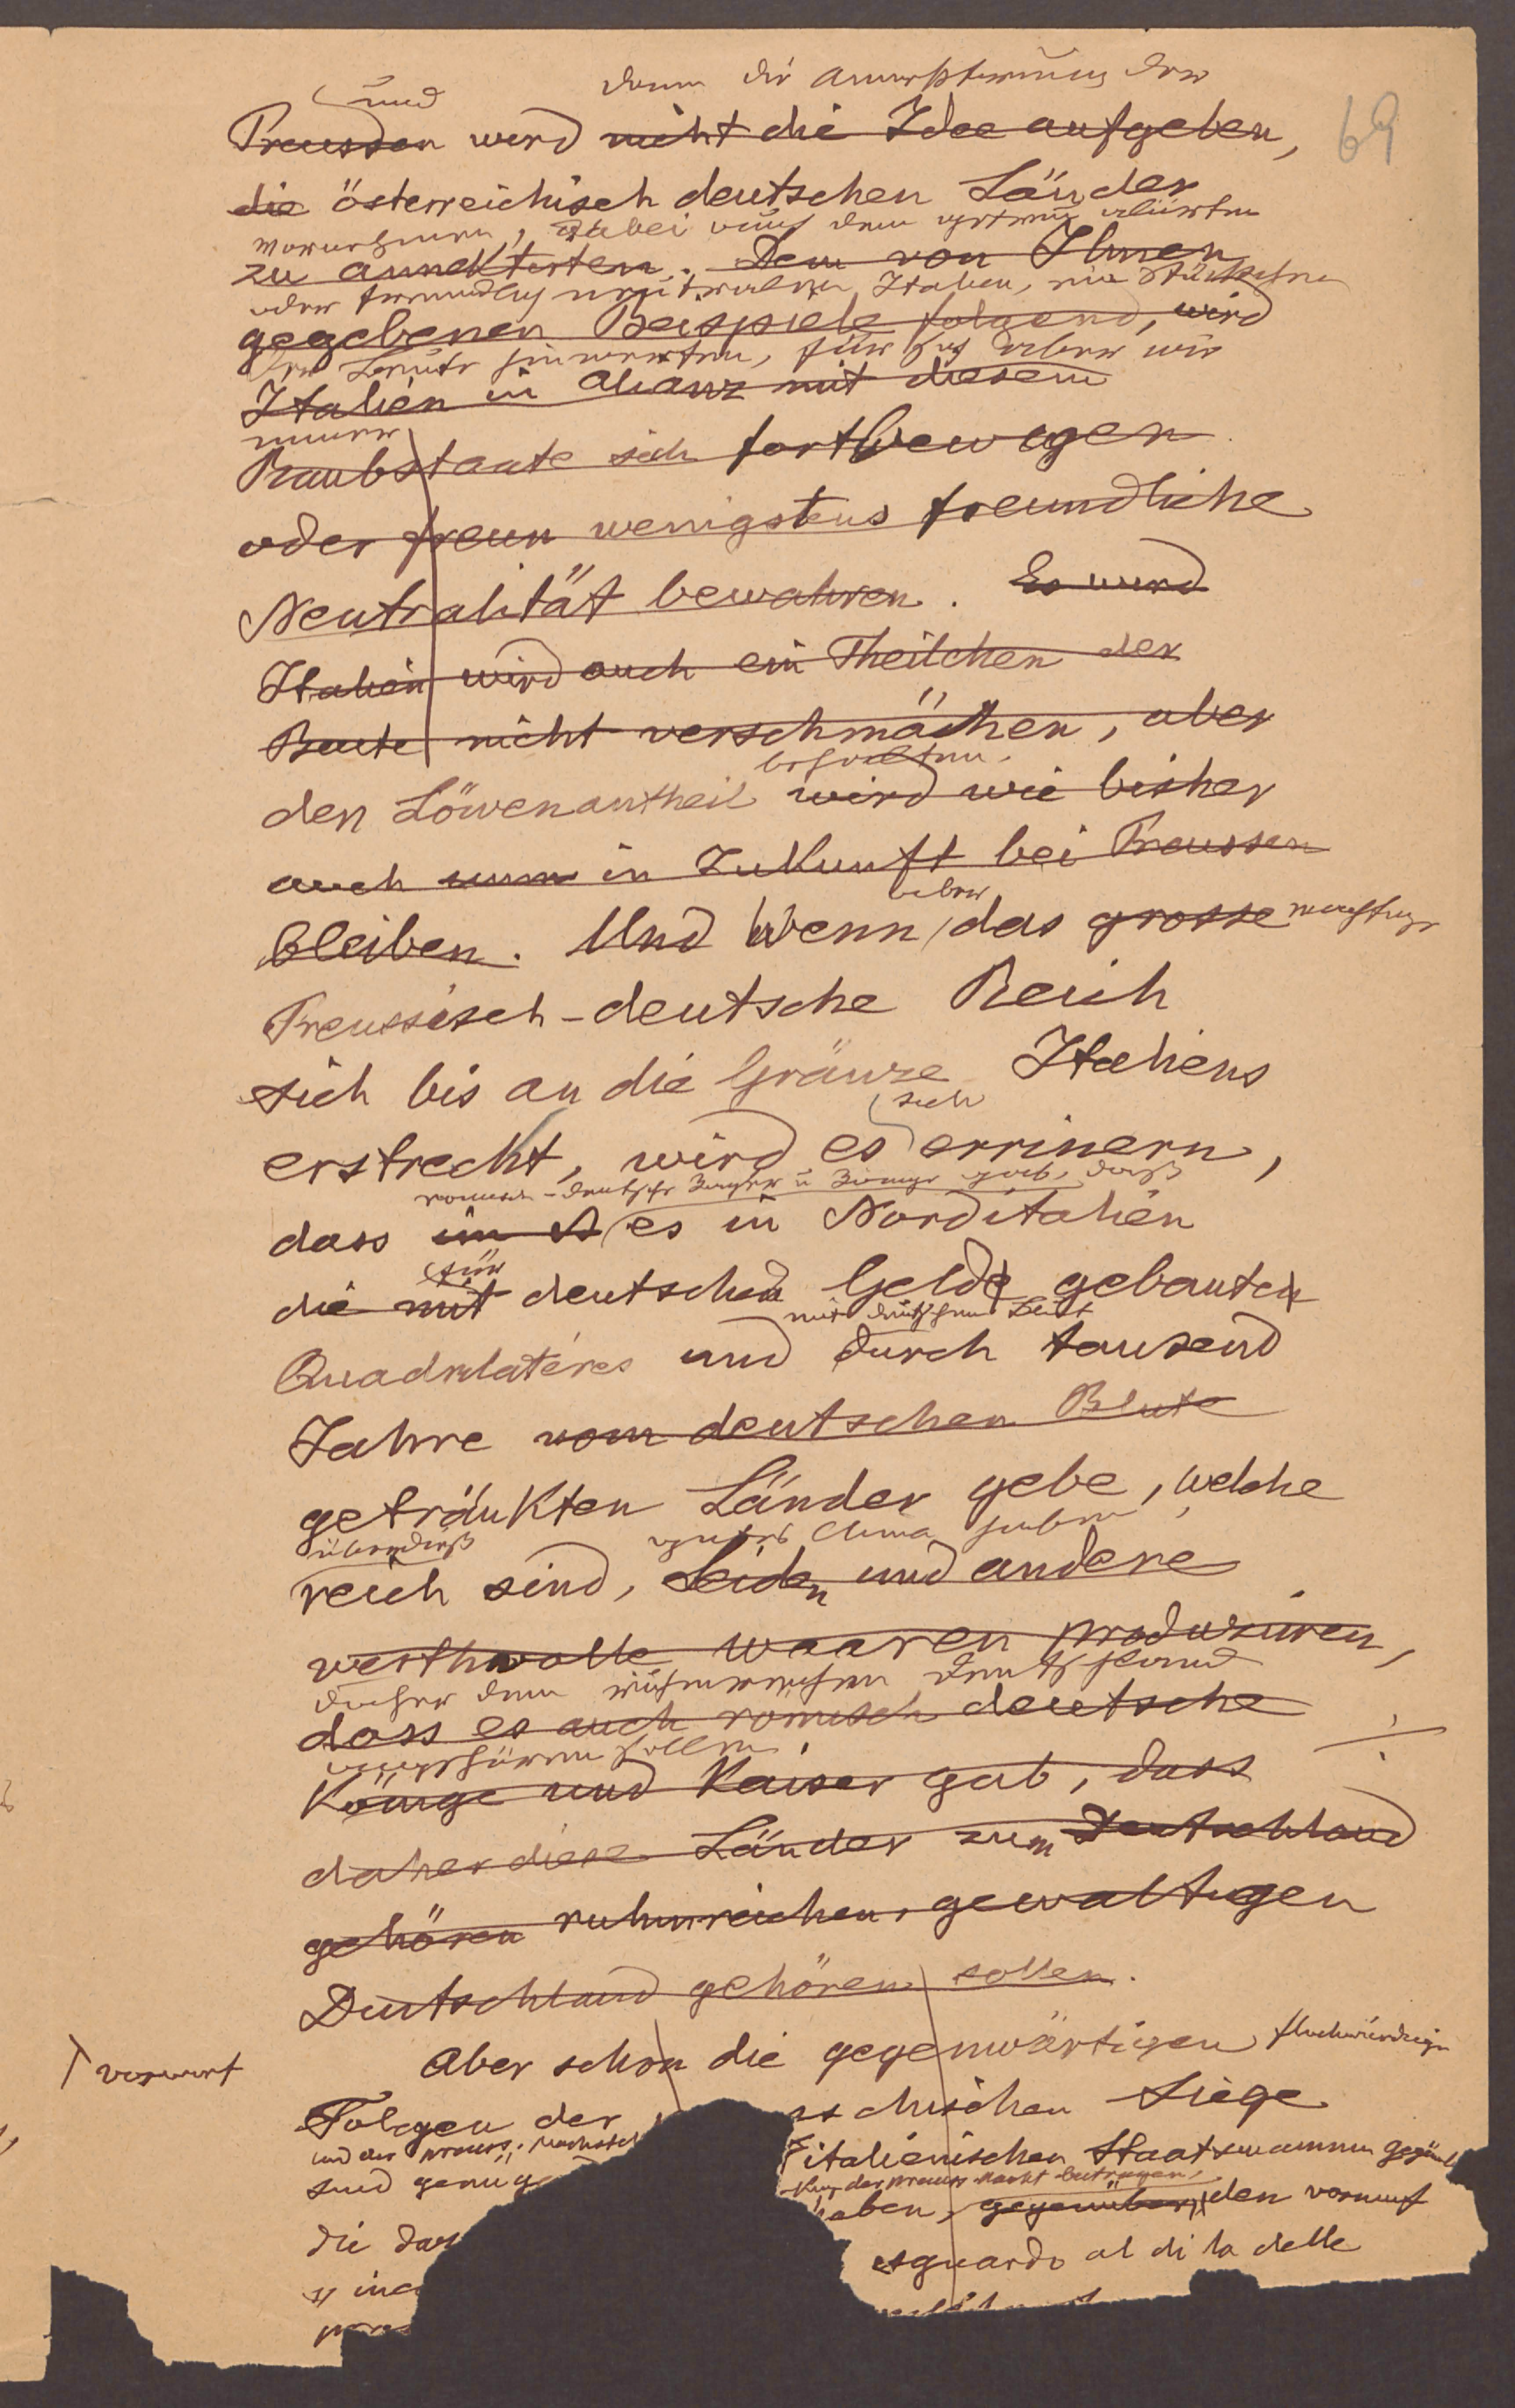 69
und dann die Annektierung der
Preussen wird nicht die Idee aufgeben,
die österreichisch deutschen Länder
vornehmen, dabei auch dem
zu annektirten. Dem von Ihnen
oder freundlich neutralen Italien, ein Stückchen
gegebenen Beispiele folgend, wird
der Beute hinwerfen, für sich aber wie
Italien in Alianz mit diesem
immer
Raubstaate sich fortbewegen
oder freun wenigstens freundliche
Neutralität bewahren. Es wird
Italien wird auch ein Theilchen der
Beute nicht verschmächen, aber
behalten.
den Löwenantheil wird wie bisher
auch nun in Zukunft bei Preussen
aber
bleiben. Und wenn das grosse mächtige
Preussisch-deutsche Reich
sich bis an die Gränze Italiens
sich
erstreckt, wird es errinern,
römisch-deutsche Kaiser u Könige gab, daß
dass im N es in Norditalien
für
die mit deutschen Gelde gebauten
mit deutschem Blut
Quadrilatéres und durch tausend
Jahre vom deutschen Blute
getränkten Länder gebe, welche
überdieß gutes Clima haben
reich sind, Seiden und andere
werthvolle Waaren produziren,
daher dem ruhmreichen Deutschland
dass es auch römisch deutsche
angehören sollen.
Könige und Kaiser gab, dass
daher diese Länder zum Deutschland
gehören ruhmreichen, gewaltigen
Deutschland gehören sollen.
Aber schon die gegenwärtigen fluchwürdigen
vorwurf
Folgen der schischen Siege
und der preuss.
italienischen Staatsmännern
sind genüg
der preuss Macht beitragen,
haben, gegenüber den vorwurf
die das
sguardo al di la delle